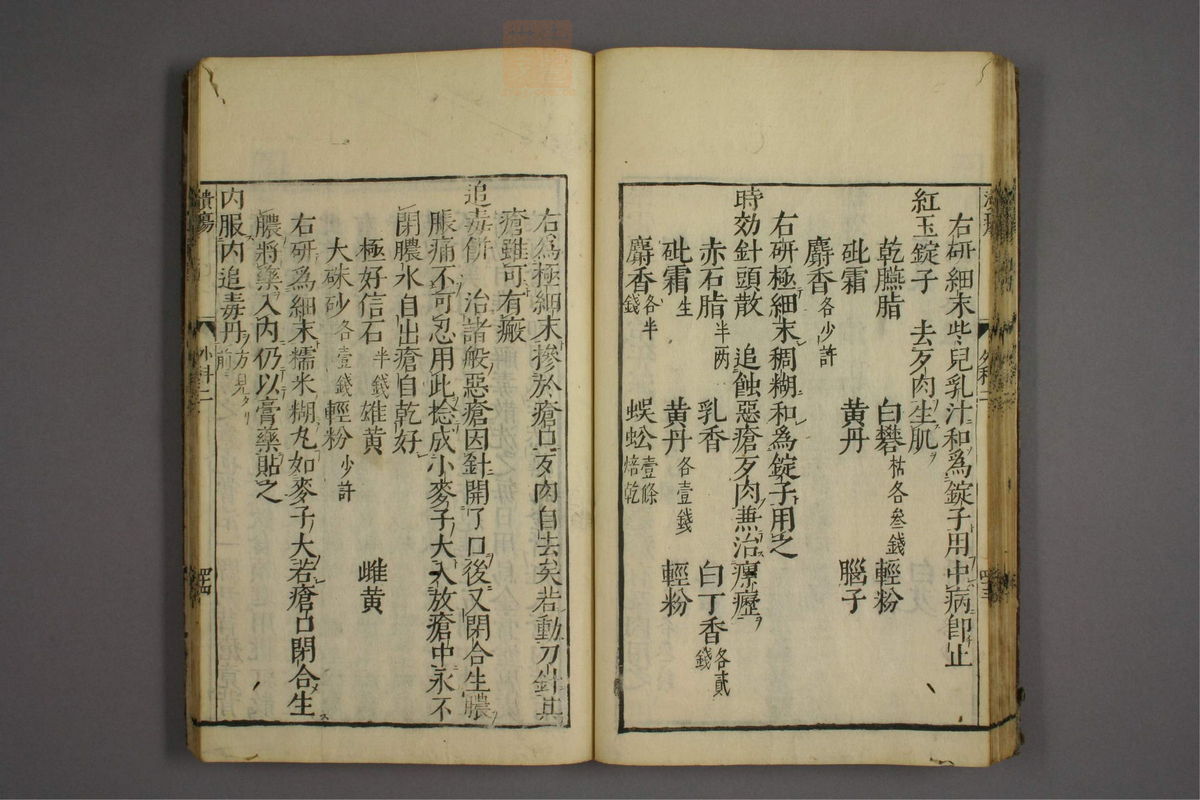 右研細末些兒乳汁和為錠子用中病卽止
紅玉錠子　去歹肉生肌
乾臙脂　白礬枯各叁錢　輕粉
砒霜　黄丹　腦子
麝香各少許
右研極細末稠糊和為錠子用之
時効針頭散　追蝕惡瘡歹肉兼治瘰癧
赤石脂半两　乳香　白丁香各貳錢
砒霜生　黄丹各壹錢　輕粉
麝香各半錢　蜈蚣壹條焙乾
右為極細末摻於瘡口歹肉自去矣若動刀針其
瘡雖可有瘢
追毒餅　治諸般惡瘡因針開了口後又閉合生膿
脹痛不可忍用此捻成小麥子大入放瘡中永不
閉膿水自出瘡自乾好
極好信石半錢　雄黄　雌黄
大硃砂各壹錢　輕粉少許
右研為細末糯米糊丸如麥子大若瘡口閉合生
膿將藥入內仍以膏藥貼之
內服內追毒丹ヲ方見タリ前
潰瘍　外科二　四十四